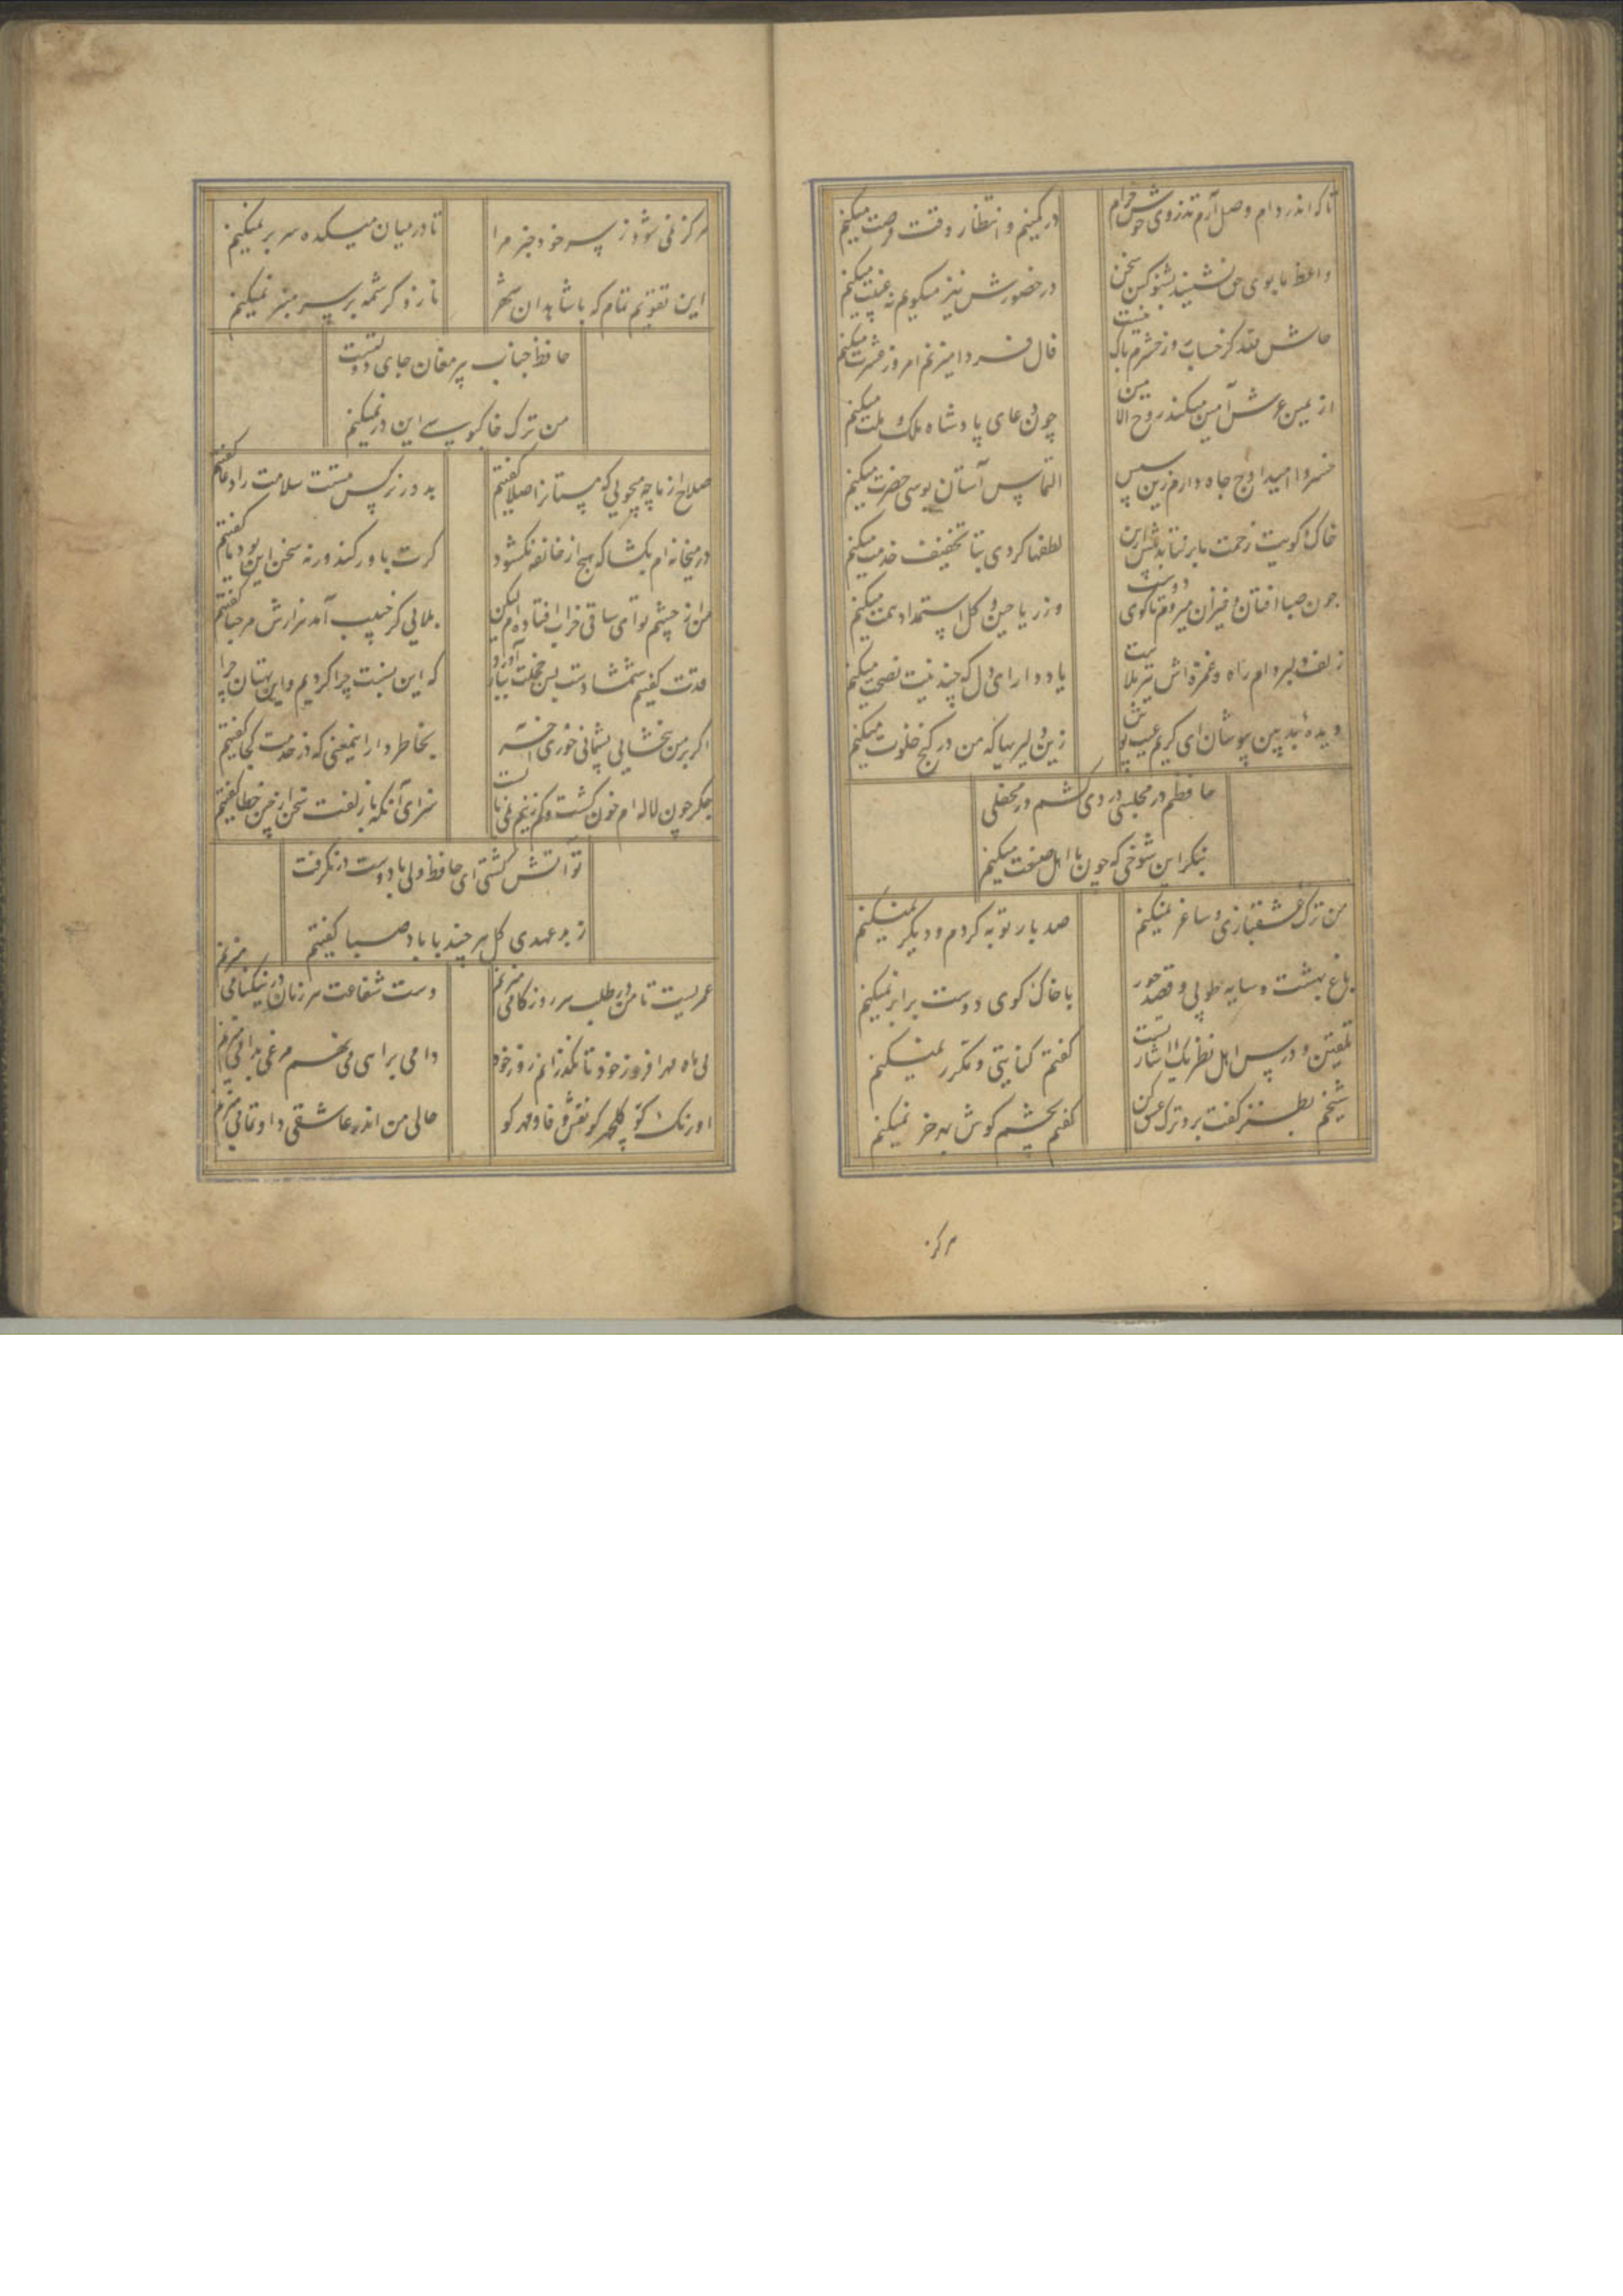 تا که اندر دام وصل آرم تذروی خوش خرام
در کمینم و انتظار وقت فرصت میکنم
واعظ ما بوی حق نشنید بشنو کین سخن
در حضورش نیز میکویم نه غیبت میکنم
حاش لله کز حساب روز حشرم باک نیست
فال فردا میزنم امروز عشرت میکنم
از یمین عرش آمین میکند روح الامین
چون دعای پادشاه ملک و ملت میکنم
خسروا امید اوج جاه دارم زین سپس
التماس آستان بوسی حضرت میکنم
خاک کویت زحمت ما برنتابد بیش ازین
لطفها کردی بتا تخفیف خدمت میکنم
چون صبا افتان و خیزان میروم تا کوی دوست
وز ریاحین و کل استمداد همت میکنم
زلف دلبر دام راه و غمزه اش تیر بلاست
یاد دار ای دل که چندینت نصیحت میکنم
دیده بدبین بپوشان ای کریم عیب پوش
زین دلیریها که من در کنج خلوت میکنم
حافظم در مجلسی دردی کشم در محفلی
بنکر این شوخی که چون با اهل صنعت میکنم
من ترک عشقبازی و ساغر نمیکنم
صد بار توبه کردم و دیکر نمیکنم
باغ بهشت و سایه طوبی و قصر حور
با خاک کوی دوست برابر نمیکنم
تلقین و درس اهل نظر یک اشارتست
کفتم کنایتی و مکرر نمیکنم
شیخم بطنز کفت برو ترک عشق کن
کفتم بچشم کوش بهر خر نمیکنم
هرکز
هرکز نمی شود ز سر خود خبر مرا
تا در میان میکده سر بر نمیکنم
این تقویم تمام که با شاهدان شهر
ناز و کرشمه بر سر منبر نمیکنم
حافظ جناب پیر مغان جای دولتست
من ترک خاکبوسی این در نمیکنم
صلاح از ما چه میجویی که مستانرا صلا کفتیم
بدور نرکس مستت سلامت را دعا کفتیم
در میخانه ام بکشا که هیچ از خانقه نکشود
کرت باور کند ورنه سخن این بود و ما کفتیم
من از چشم تو ای ساقی خراب افتاده ام لیکن
بلایی کز حبیب آمد هزارش مرحبا کفتیم
قدت کفتیم شمشادست بس خجلت ببار آورد
که این نسبت چرا کردیم و این بهتان چرا کفتیم
اکر بر من نبخشایی پشیمانی خوری آخر
بخاطر دار این معنی که در خدمت کجا کفتیم
جکر چون نافه ام خون کشت و کم زینم نمی باست
سزای آنکه با زلفت سخن از چین خطا کفتیم
تو آتش کشتی ای حافظ ولی با دوست درنکرفت
ز بدعهدی کل هر چند با باد صبا کفتیم
عمریست تا من در طلب هر روز کامی میزنم
دست شفاعت هر زمان در نیکنامی میزنم
بی ماه مهر افروز خود تا بکذرانم روز خود
دامی براهی می نهم مرغی بدامی میزنم
اورنک کو کلچهر کو نقش وفا و مهر کو
حالی من اندر عاشقی داو تمامی میزنم